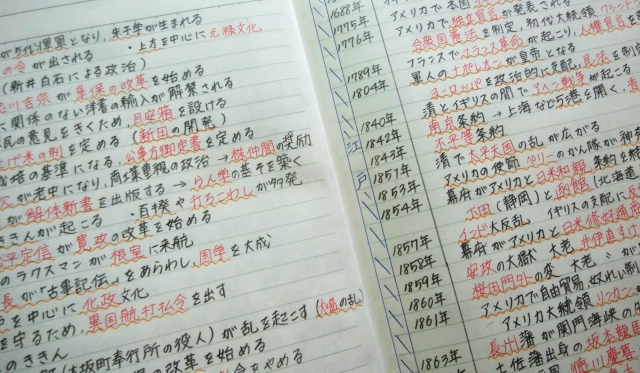 が5代将軍となり,朱子学が生まれる
の令 が出される ・上方を中心に元禄文化
(新井白石による政治)
川吉宗 が 享保の改革 を始める
に関係のない洋書の輸入が解禁される
民の意見をきくため,目安箱 を設ける
げ米の制 を定める (新田の開発)
の基準になる,公事方御定書 を定める
が老中になり,商工業重視の政治 → 株仲間 の奨励
が 解体新書 を出版する → らん学 の基そを築く
ききんが起こる ・百揆や 打ちこわし が多発
平定信 が 寛政 の改革を始める
のラクスマンが 根室 に来航
長が「古事記伝」をあらわし,国学 を大成
を中心に 化政 文化
を守るため,異国船打払令 を出す
のききん
(大坂町奉行所の役人)が乱を起こす
の改革を始める
令をやめる
1688年
1775年
1776年
1789年
1804年
1840年
1842年
1843年
1857年
1853年
1854年
1857年
1858年
1859年
1860年
1861年
1863年
江
戸
アメリカで本国
アメリカで 独立宣言 が発表される
合衆国憲法 を制定,初代大統領
フランスで フランス革命 が起こり,人権宣言
軍人の ナポレオン が皇帝となる
ヨーロッパ を政治的に支配,
清とイギリスの間で アヘン戦争 が起こる
南京 条約 → 上海など5港を開く,
不平等 条約
清で 太平天国 の乱が広がる
アメリカの使節 ペリー のかん隊が
幕府がアメリカと 日米和親 条約を
下田 (静岡)と 函館 (北海道
インド 大反乱 イギリスの支配に
幕府がアメリカと 日米修好通商
安政 の大獄 大老 井伊直
桜田門外 の変 大老
アメリカで自由貿易,奴れい制
アメリカ大統領 リンカン
長州 藩が関門海峡の
土佐藩出身の 坂本龍
徳川慶喜